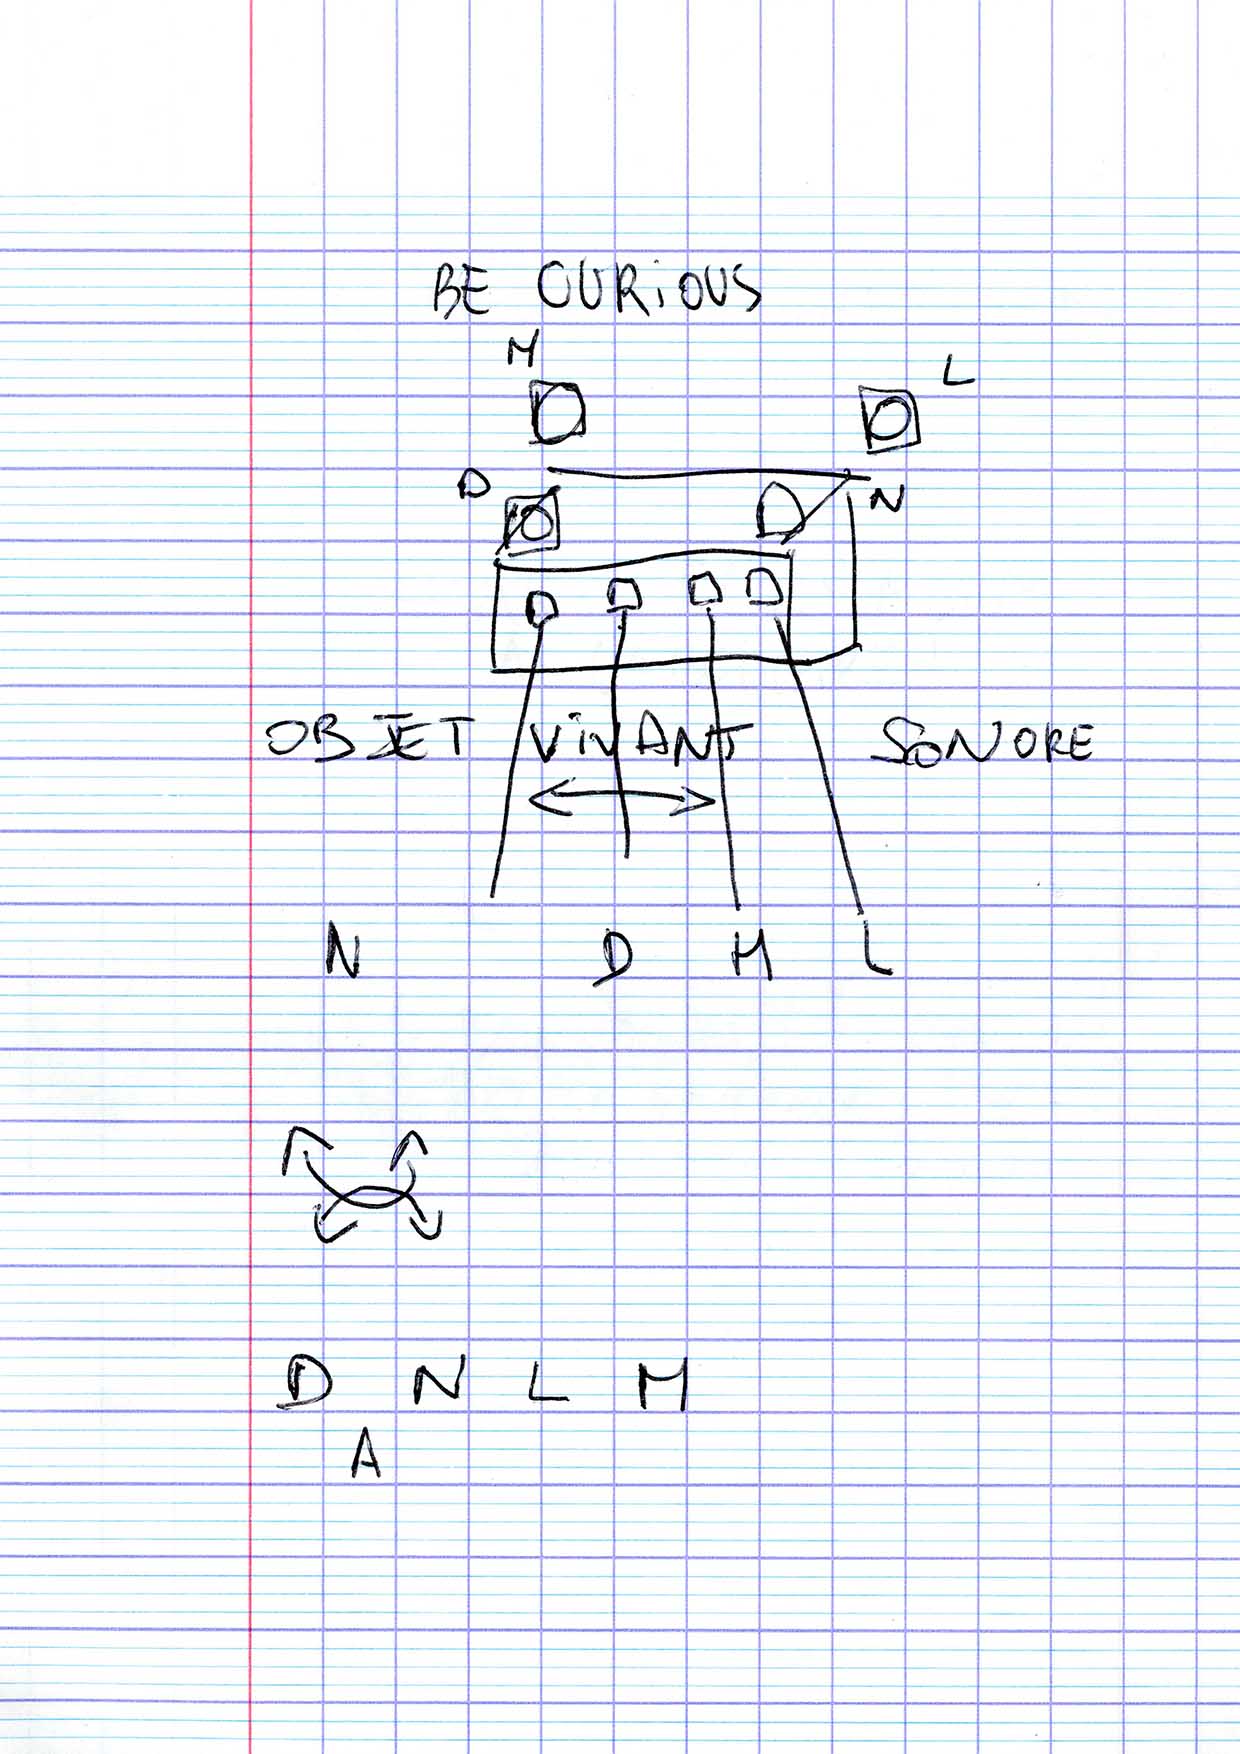 BE CURIOUS
M
L
D
N
OBJET VIVANT SONORE
N D M L
D N L M
A